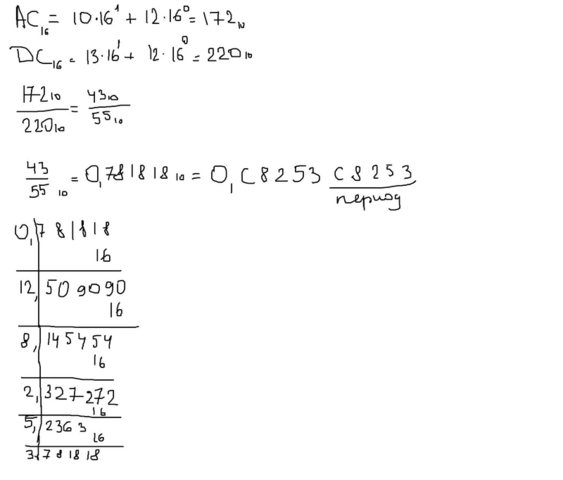 AC₁₆ = 10·16¹ + 12·16⁰ = 172₁₀
DC₁₆ = 13·16¹ + 12·16⁰ = 220₁₀
172₁₀/220₁₀ = 43₁₀/55₁₀
43/55₁₀ = 0,781818₁₀ = 0,C8253 C8253
период
0, 781818
16
12, 509090
16
8, 145454
16
2, 327272
16
5, 2363
16
3, 781818